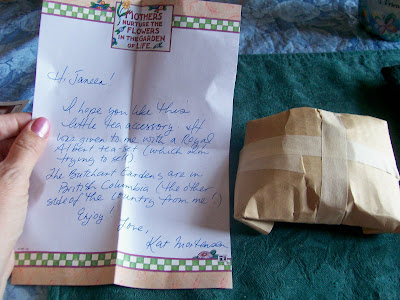 MOTHERS
NURTURE THE
FLOWERS
IN THE GARDEN
OF LIFE.
Hi Janeen!
I hope you like this
little tea accessory. It
was given to me with a Royal
Albert tea set (which I'm
trying to sell)
The Butchart Gardens are in
British Columbia (the other
side of the country from me!)
Enjoy!
Love,
Kat Mortensen